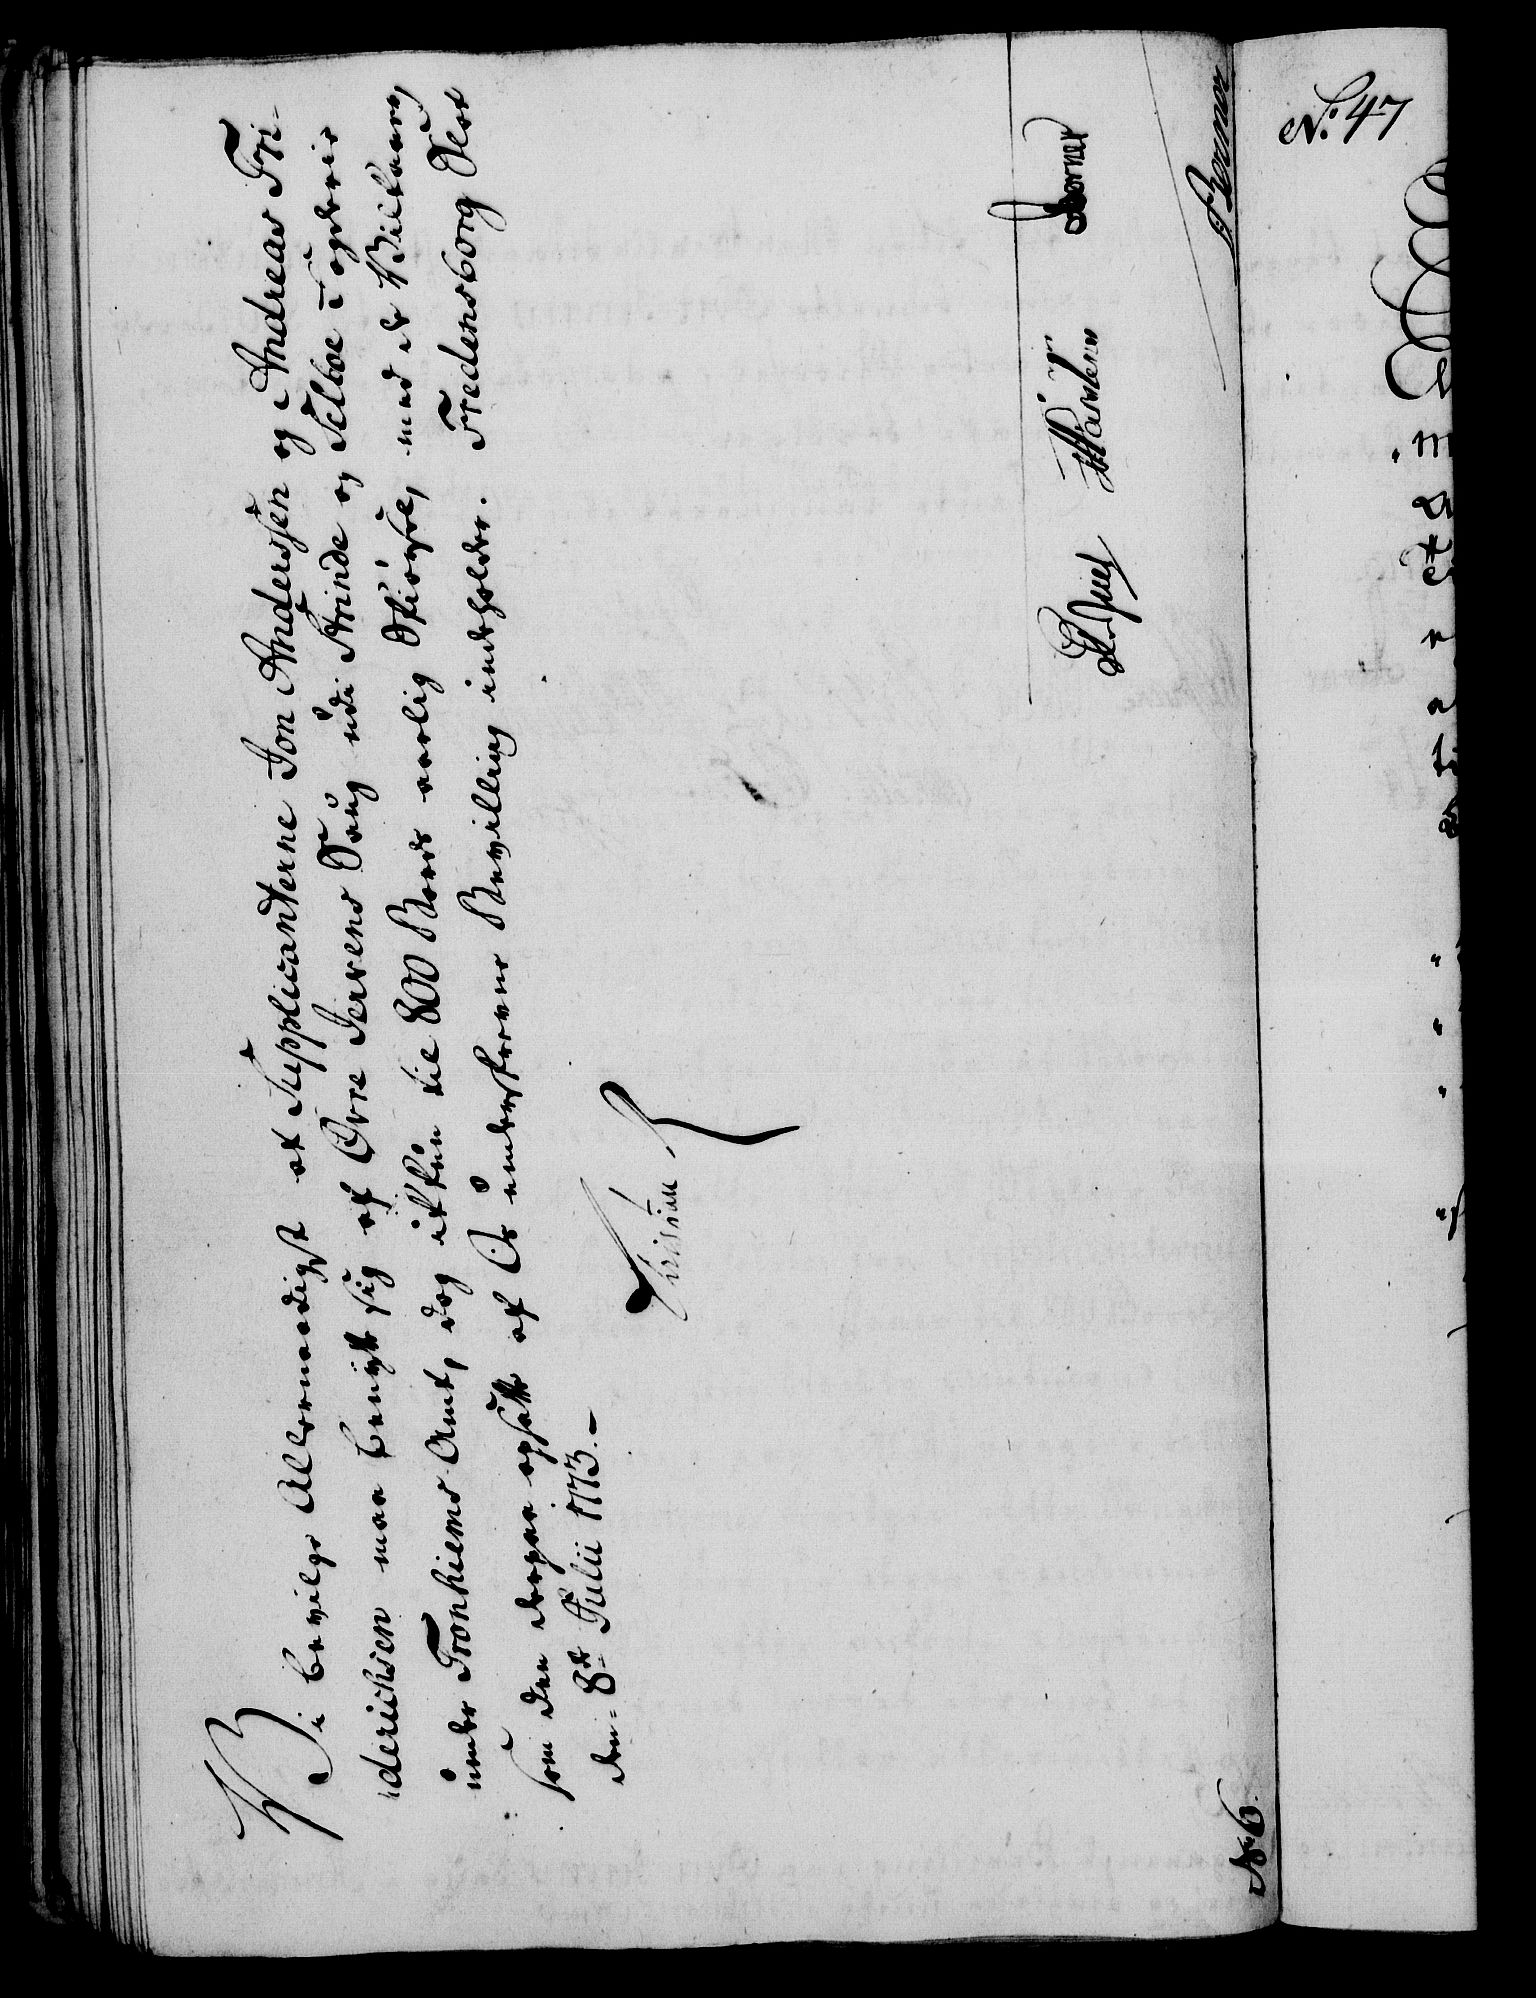 Vi bevilge Allernaadigst at Supplicanterne Jon Anderssen og Andreas Fri-
derichsen maa benytte sig af Øvre Jervens Saug udi Strinde og Selboe Fogderie
under Tronhiems Amt, dog ikkun til 800 Bords aarlig Skiørsel, med de Vilkaar,
som den derpaa opsatte af Os underskrevne Bevilling indeholder. Fredensborg Slot
den 8de Julii 1773.
Christian
Juel
Borner
Berner
No 6.
No 47